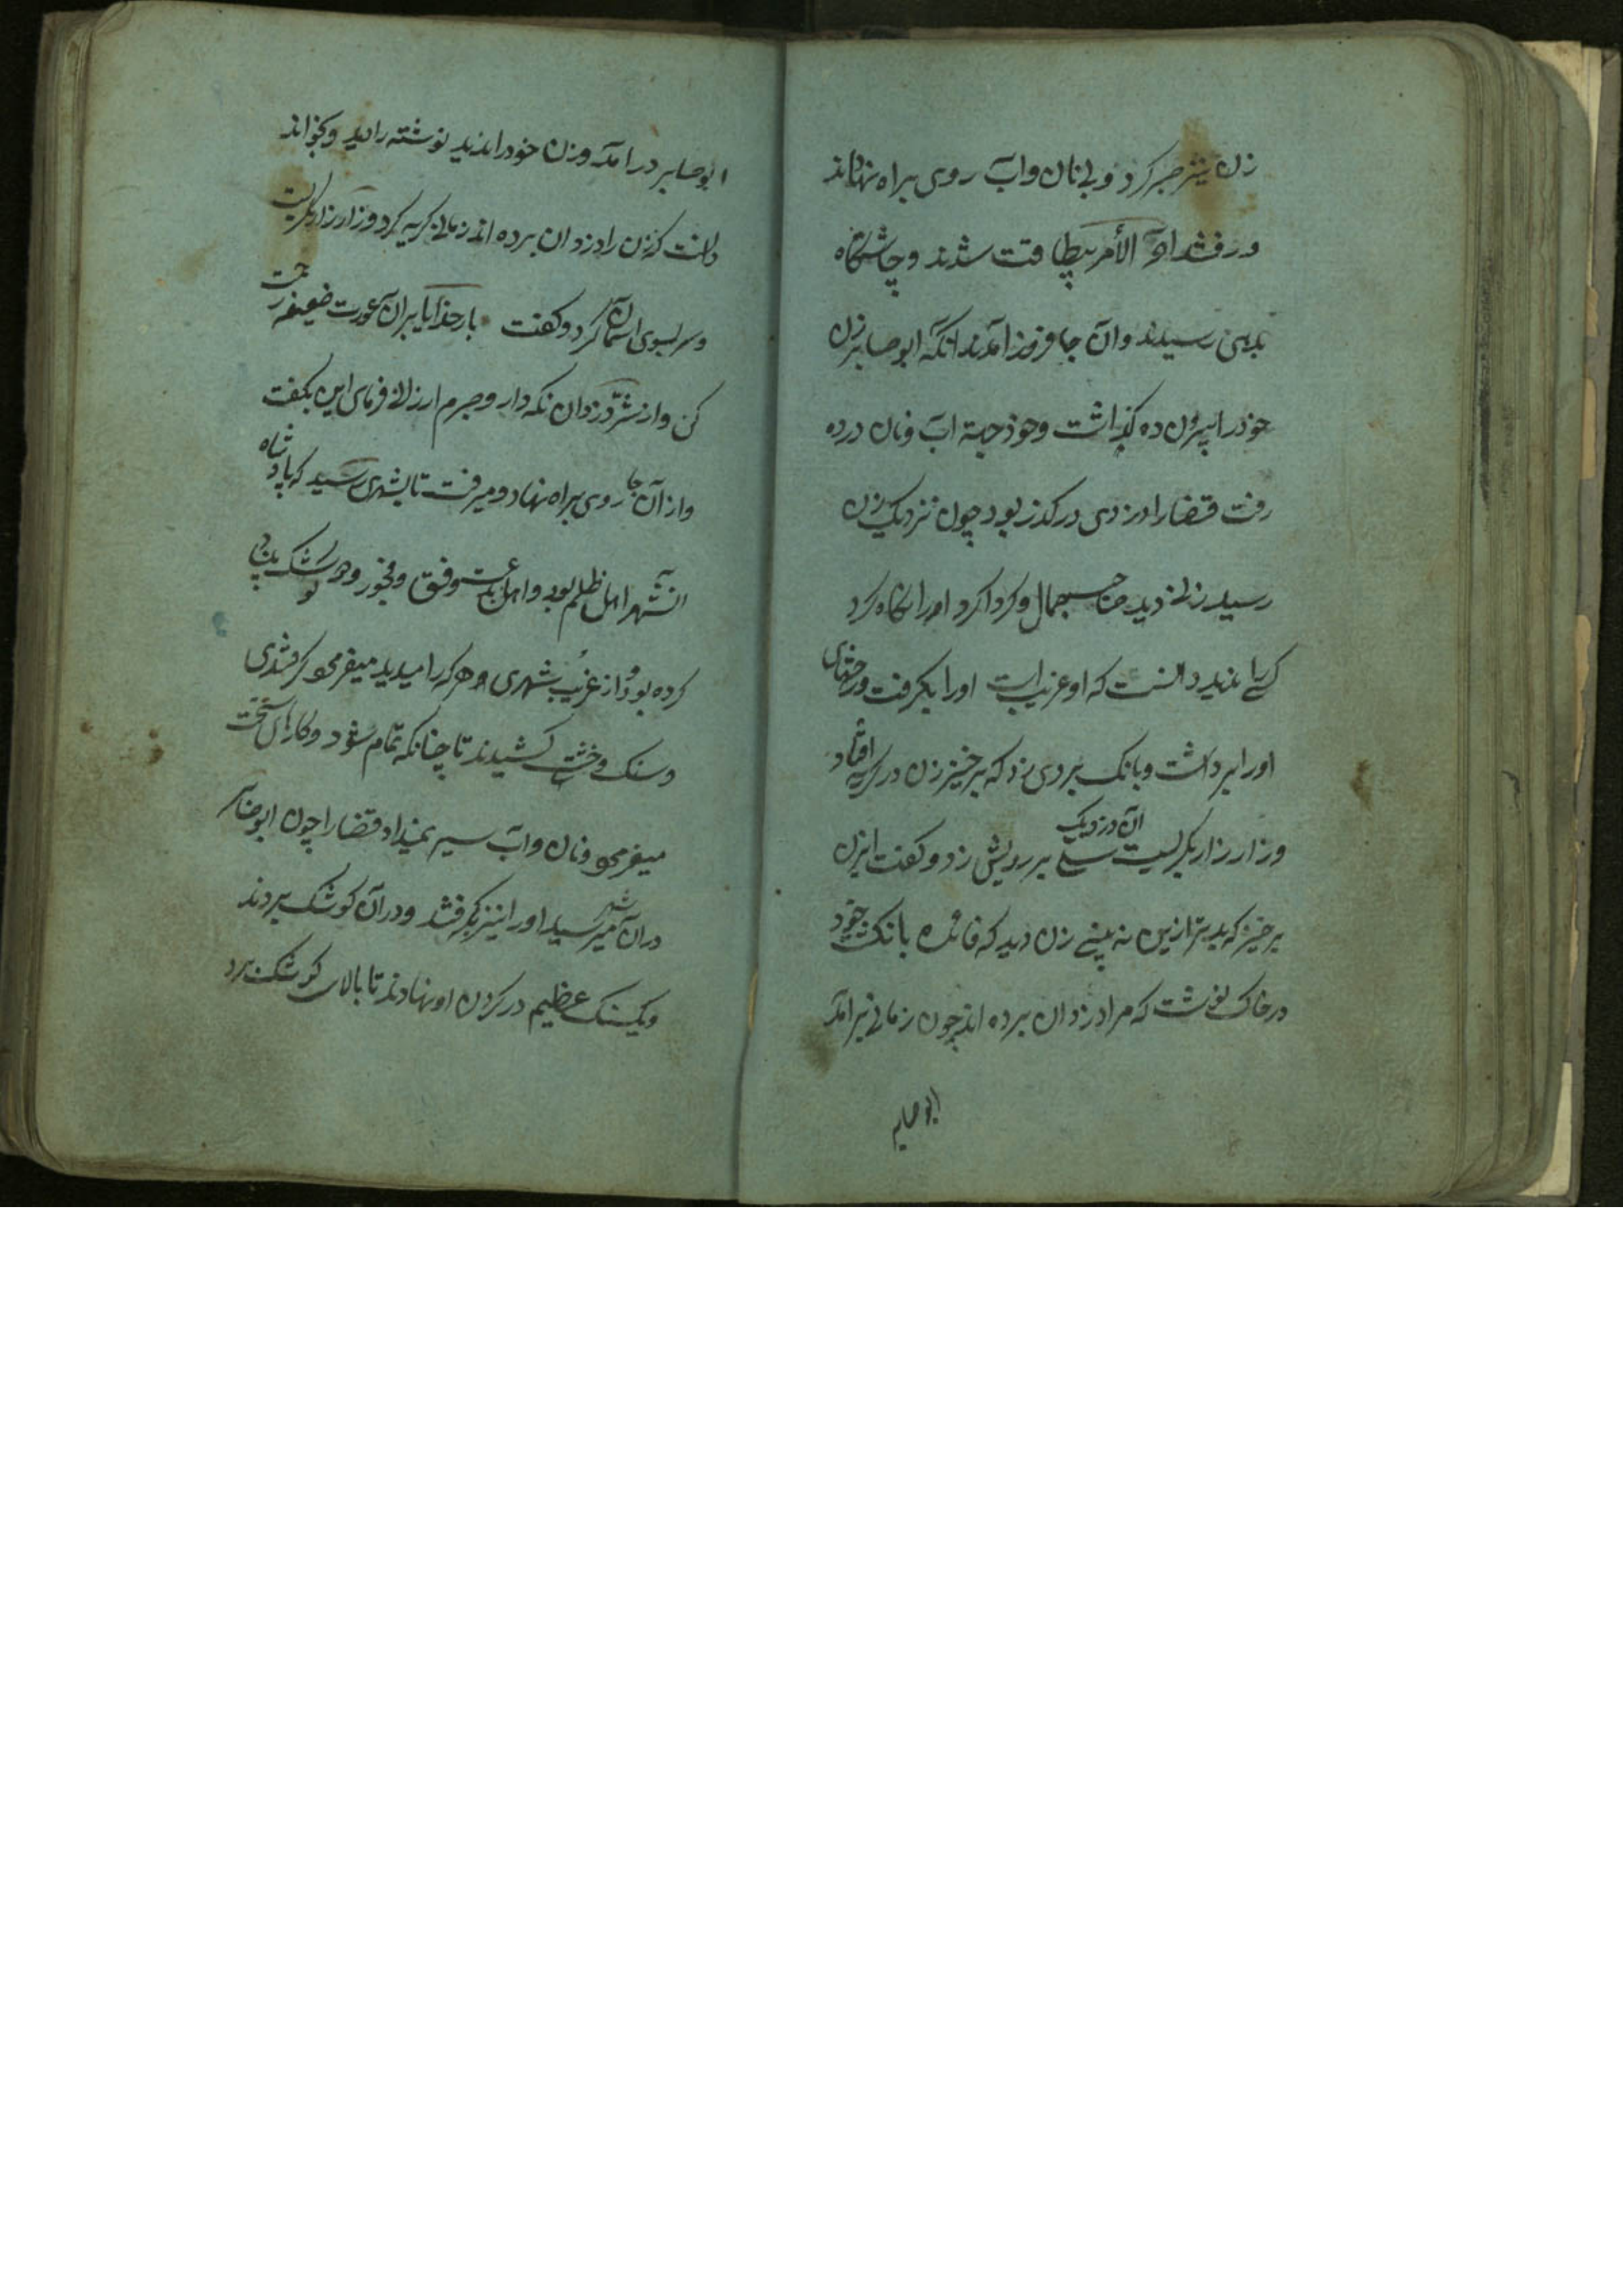 زن نیز صبر کرد و بی نان و آب روی براه نهادند
و رفتند آخر الأمر بیطاقت شدند و چاشتگاه
بدهی رسیدند و آن جا فروز آمدند آنکه ابو صابر زن
خوذ را بیرون ده کذاشت و خوذ جهة آب و نان در ده
رفت قضا را دزدی در کذر بود چون نزدیک زن
رسید زنی دید صاحب جمال و کرداکرد او را نکاه کرد
کسی را ندید دانست که او غریب است او را بکرفت و
او را برداشت و بانک بر وی زد که برخیز زن در کریه افتاد
و زار زار بکریست آن دزد یک سیلی بر رویش زد و کفت ای زن
برخیز که بدتر ازین نه بینی زن دید که فائده بانکشت خود
در خاک نوشت که مرا دزدان برده اند چون زمانی برآمد
ابو صابر
ابو صابر درآمد و زن خود را ندید نوشته را دید و بخواند
دانست که زن را دزدان برده اند زمانی کریه کرد و زار زار بکریست
و سر بسوی آسمان کرد و کفت بار خدایا بر آن عورت ضعیفه رحمت
کن و از شر دزدان نکه دار و جرم ارزانی فرمای این بکفت
و از آن جا روی براه نهاد و میرفت تا بشهری رسید که پادشاه
آنشهر اهل ظلم بود و اهل بدعت و فسق و فجور و کوشک بنا
کرده بود و از غریب شهری و هر که را میدید میفرمود کرفتندی
و سنک و خشت کشیدند تا چنانکه تمام شود و کارهای سخت
میفرمود و نان و آب سیر نمیداد قضا را چون ابو صابر
در آن شهر رسید او را نیز بکرفتند و در آن کوشک بردند
و یک سنک عظیم در کردن او نهادند تا بالای کوشک برد